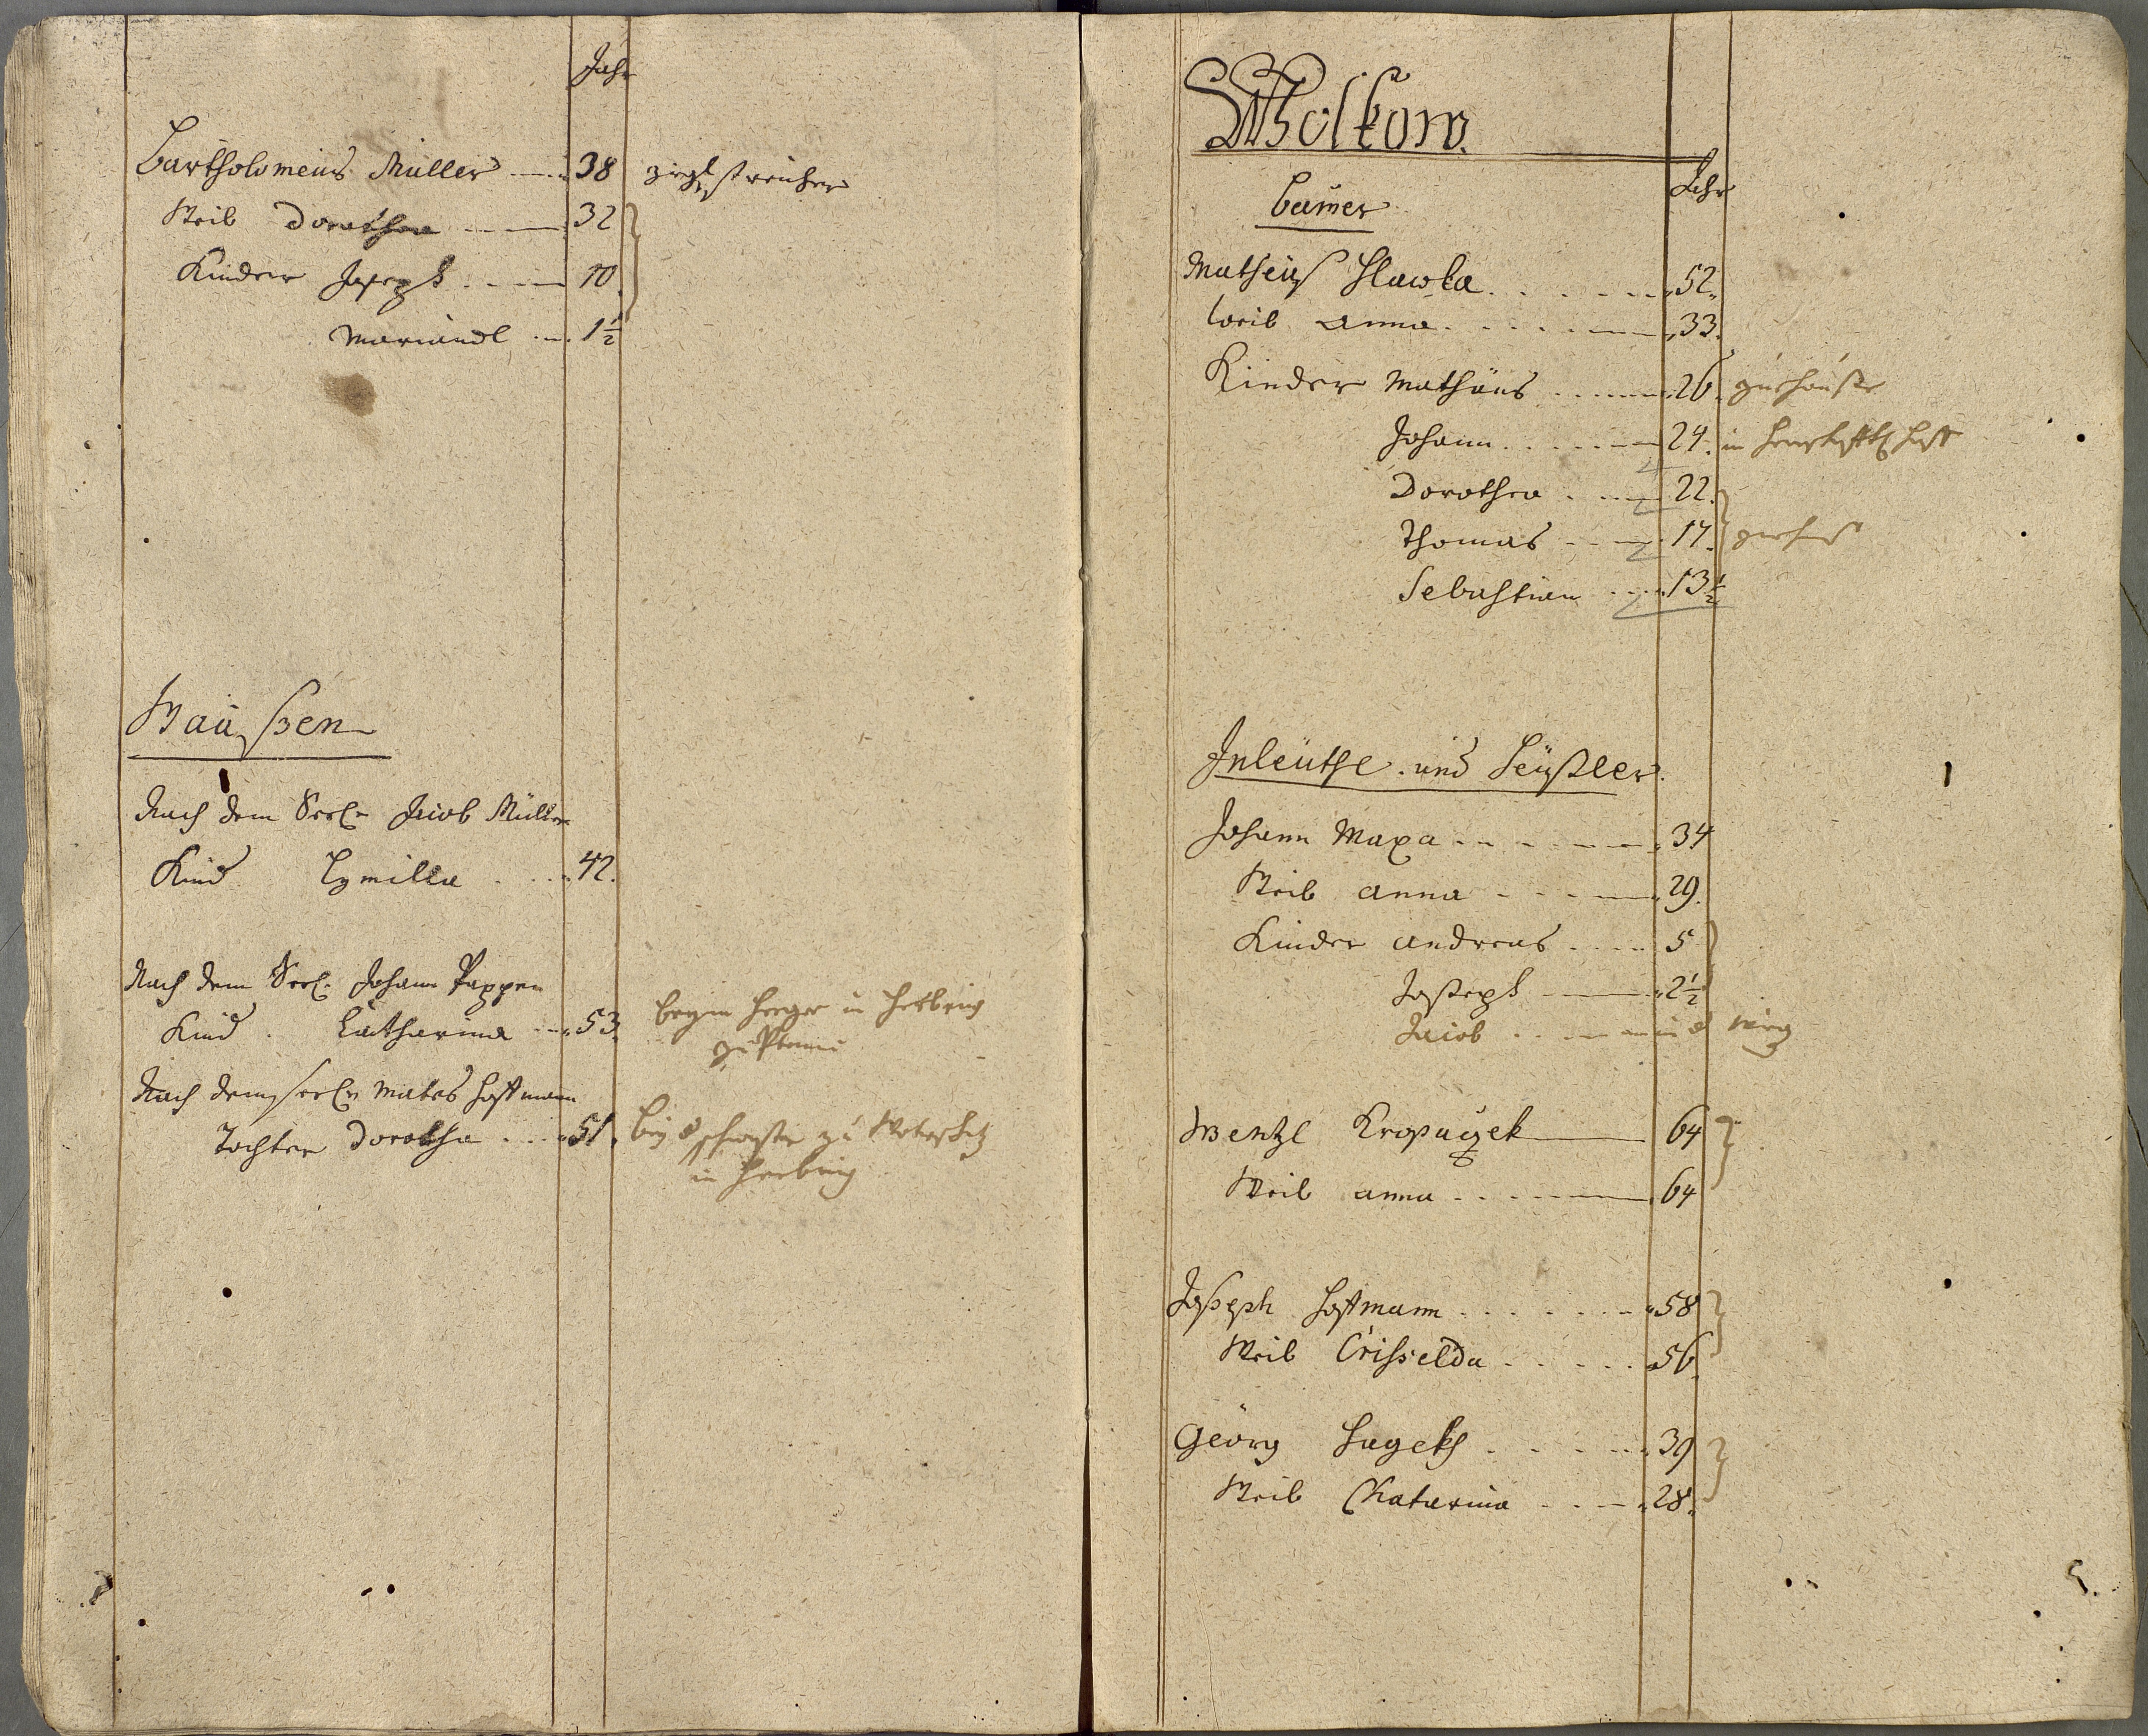 Jahr
Bartholomeus Müller 38 ziglstreicher
Weib Dorothea 32
Kinder Joseph 10
Mariandl 1½
Waißen
Nach dem Seel. Jacob Müller
Kind Lymilla 42.
Nach dem Seel. Johann Pappen
Kind Catharina 53.
Nach dem seel. Mates Hoffmann
Tochter Dorothea 51.
in
Wolkow.
Jahr
Bauer
Matheus Hlawka 52
Weib Anna 33.
Kinder Mathäus 26 zu hauße
Johann 24. in
Dorothea 22.
Thomas 17. zu hauß
Sebastian 13½
Inleuthe und Heüßler.
Johann Maxa 34
Weib Anna 29.
Kinder Andreas 5
Joseph 2½
Jacob
Wentzl Kropaczek 64
Weib Anna 64
Joseph Hoffmann 58
Weib Crisselda 56.
Georg Hagek 39
Weib Chatarina 28.
5.